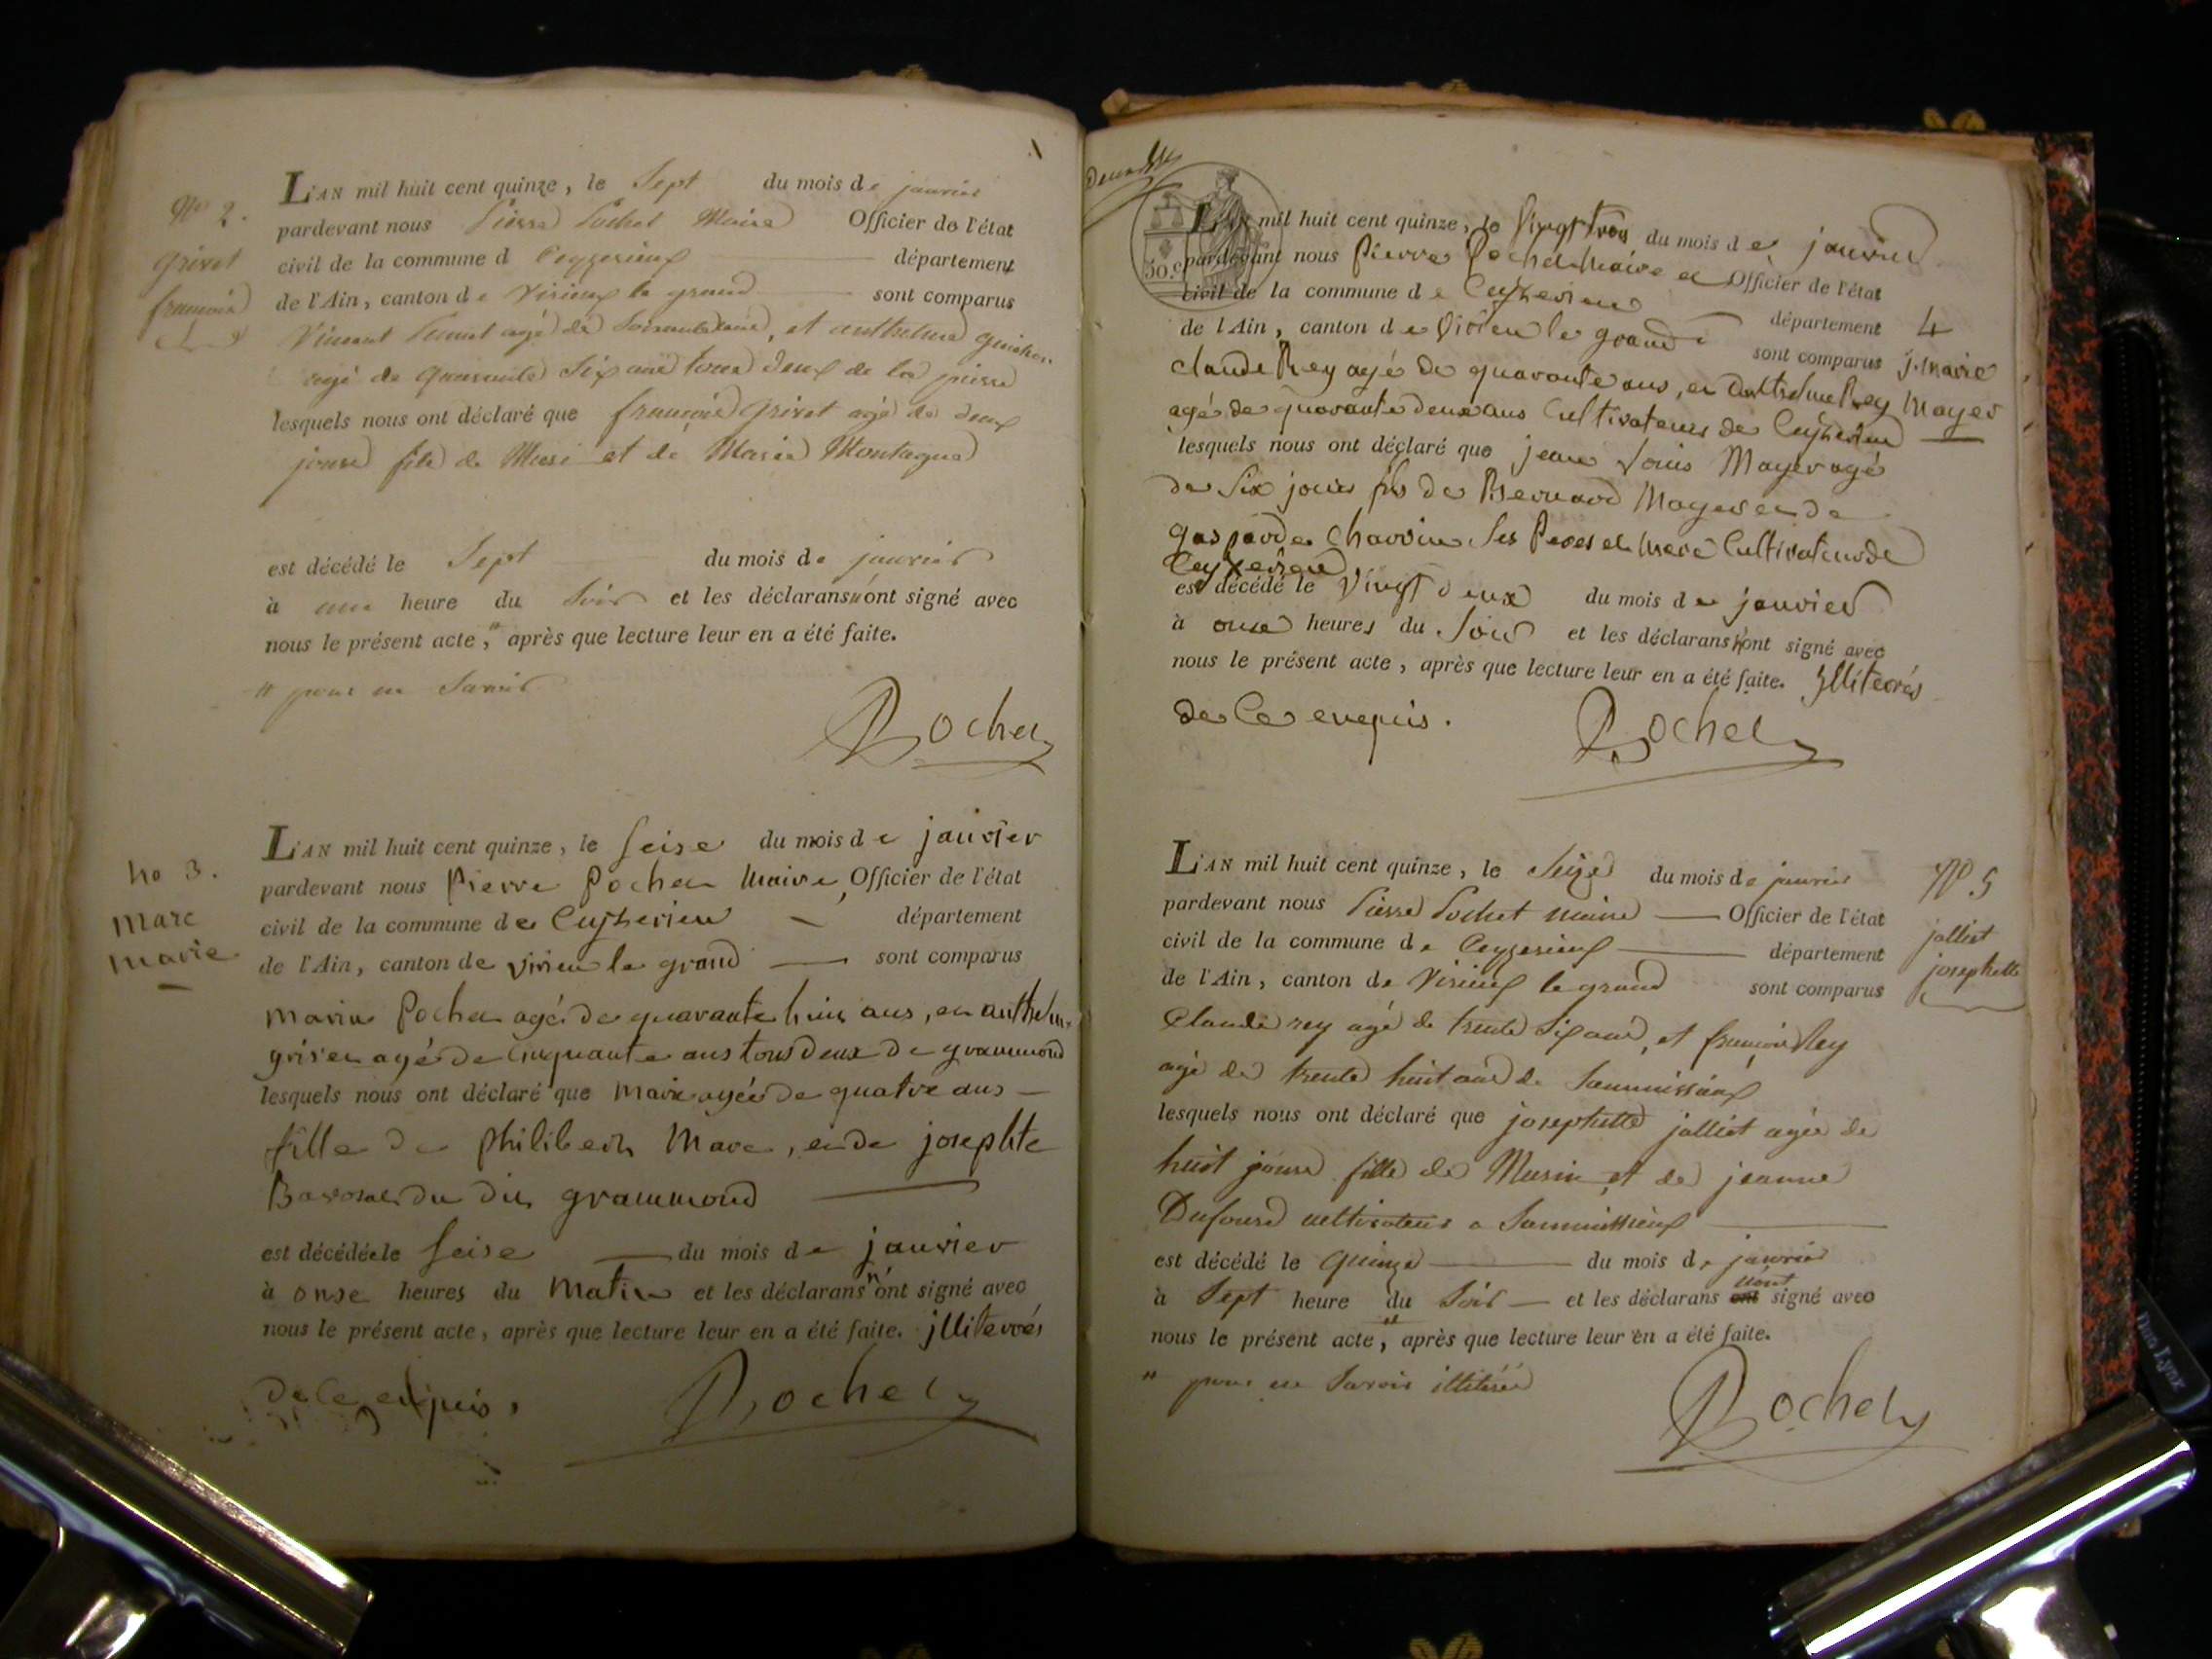 No 2.
grivet
françois
L'AN mil huit cent quinze, le Sept du mois de janvier
pardevant nous Pierre Pochet Maire Officier de l'état
civil de la commune d Ceyzerieux département
de l'Ain, canton de Virieux le grand sont comparus
Vincent agé de Soixante ans, et anthelme guichon
agé de quarante Six ans tous deux de la pierre
lesquels nous ont déclaré que françois grivet agé de deux
jours fils de et de Marie Montagne
est décédé le Sept du mois de janvier
à une heure du Soir et les déclarans n'ont signé avec
nous le présent acte, " après que lecture leur en a été faite.
" pour ne Savoir
Pochet
no 3.
Marc
Marie
L'AN mil huit cent quinze, le Seise du mois de janvier
pardevant nous Pierre Pochet Maire, Officier de l'état
civil de la commune de Ceyzerieu département
de l'Ain, canton de Virieu le grand sont comparus
Marin Pochet agé de quarante huit ans, et anthelme
grivet agé de Cinquante ans tous deux de grammond
lesquels nous ont déclaré que Marie agée de quatre ans
fille de philibert Marc, et de josephte
du dit grammond
est décédée le Seise du mois de janvier
à onse heures du Matin et les déclarans n'ont signé avec
nous le présent acte, après que lecture leur en a été faite. jlliterrés
de ce enquis.
Pochet
L'AN mil huit cent quinze, le Vingt trois du mois de janvier
30.c
pardevant nous Pierre Pochet Maire et Officier de l'état
civil de la commune de Ceyzerieu département
de l'Ain, canton de Virieu le grand sont comparus
4
j. Marie
Mayer
claude Rey agé de quarante ans, et Anthelme Rey
agé de quarante deux ans Cultivateurs de Ceyzerieu
lesquels nous ont déclaré que jean Louis Mayer agé
de Six jours fils de Bernard Mayer et de
gasparde Charvin Ses Peres et Mere Cultivateurs de
Ceyzerieu
est décédé le Vingt deux du mois de janvier
à onse heures du Soir et les déclarans n'ont signé avec
nous le présent acte, après que lecture leur en a été faite. jlliterrés
de Ce enquis.
Pochet
No 5
jolliet
josephette
L'AN mil huit cent quinze, le Seize du mois de janvier
pardevant nous Pierre Pochet maire Officier de l'état
civil de la commune de Ceyzerieux département
de l'Ain, canton de Virieux le grand sont comparus
Claude rey agé de trente Six ans, et françois Rey
agé de trente huit ans de Sammissieux
lesquels nous ont déclaré que josephette jolliet agée de
huit jours fille de Marin et de jeanne
Dufour cultivateurs a Sammissieux
est décédé le quinze du mois de janvier
à Sept heure du Soir et les déclarans ont n'ont signé avec
nous le présent acte, " après que lecture leur en a été faite.
" pour ne Savoir
Pochet